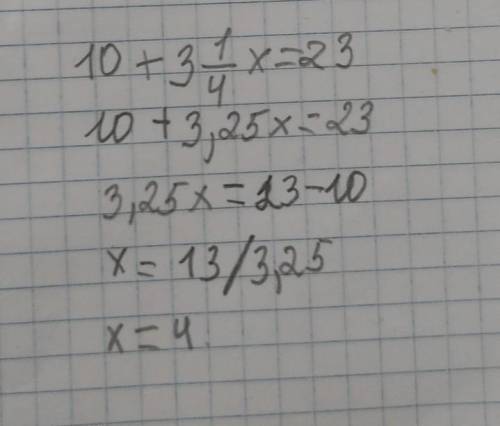 10 + 3 1/4 x = 23
10 + 3,25x = 23
3,25x = 23 - 10
x = 13/3,25
x = 4